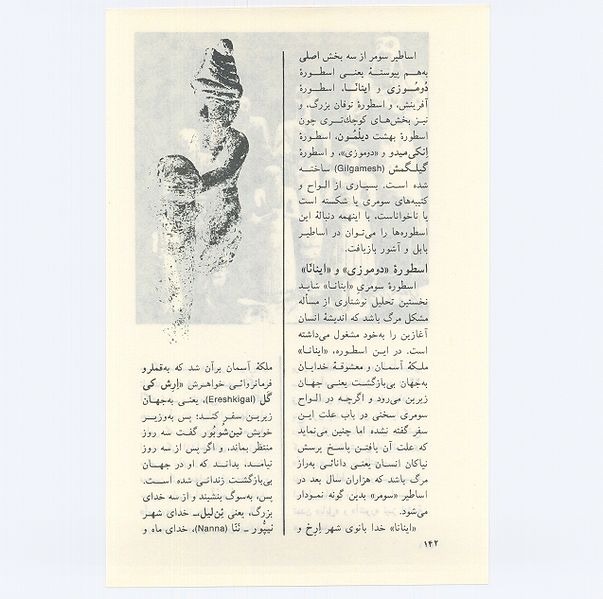 اساطیر سومر از سه بخش اصلی
به‌هم پیوستهٔ یعنی اسطورهٔ
دُوموُزی و اینانَـا، اسطورهٔ
آفرینش، و اسطورهٔ توفان بزرگ، و
نیز بخش‌های کوچک‌تری چون
اسطورهٔ بهشت دیلْمُون، اسطورهٔ
اِنکی‌میدو و «دوموزی»، و اسطورهٔ
گیلگمش (Gilgamesh) ساخته
شده است. بسیاری از الواح و
کتیبه‌های سومری یا شکسته است
یا ناخواناست، با اینهمه دنبالهٔ این
اسطوره‌ها را می‌توان در اساطیر
بابل و آشور بازیافت.
اسطورهٔ «دوموزی» و «اینانَا»
اسطورهٔ سومریِ «اینانـا» شاید
نخستین تحلیل نوشتاری از مسأله
مشکل مرگ باشد که اندیشهٔ انسان
آغازین را به‌خود مشغول می‌داشته
است. در این اسطوره، «اینانا»
ملکهٔ آسمان و معشوقهٔ خدایان
به‌جهان بی‌بازگشت یعنی جهان
زیرین می‌رود و اگرچه در الواح
سومری سخنی در باب علت این
سفر گفته نشده اما چنین می‌نماید
که علت آن یافتن پاسخ پرسش
نیاکان انسان یعنی دانائی به‌راز
مرگ باشد که هزاران سال بعد در
اساطیر «سومر» بدین گونه نمودار
می‌شود.
«اینانا» خدا بانوی شهر اِرِخ و
ملکهٔ آسمان برآن شد که به‌قملرو
فرمانروائی خواهرش «اِرِش کی
گَل (Ereshkigal)، یعنی به‌جهان
زیرین سفر کنـد؛ پس به‌وزیر
خویش نین‌شُوبُور گفت سه روز
منتظر بماند، و اگر پس از سه روز
نیامد، بداند که او در جهان
بی‌بازگشت زندانی شده است.
پس، به‌سوگ بنشیند و از سه خدای
بزرگ، یعنی نِن‌لیل، ـ خدای شهر
نیپُور ـ نَنّا (Nanna)، خدای ماه و
۱۴۲